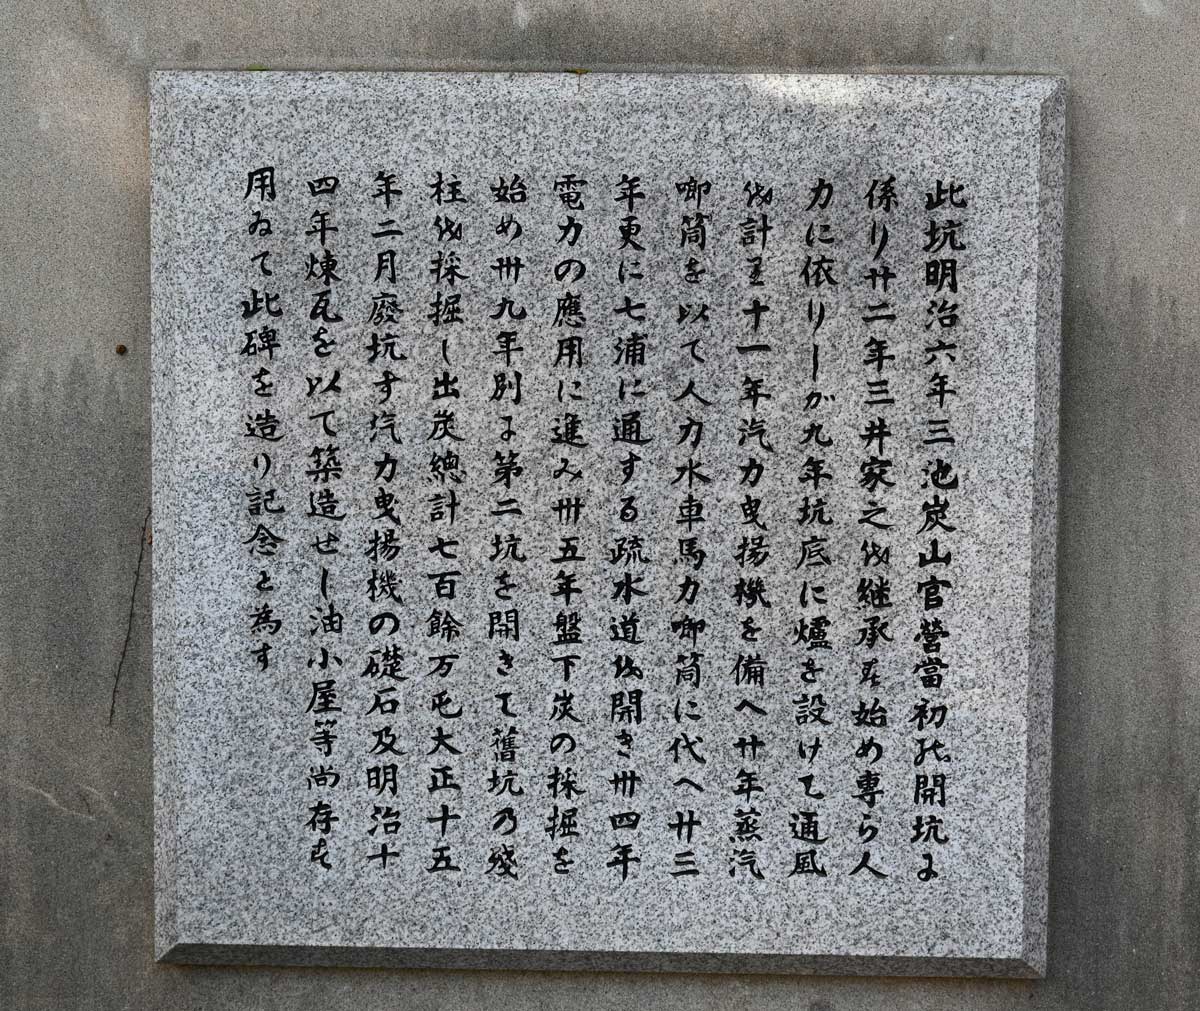 此坑明治六年三池炭山官營當初の開坑に
係り廿二年三井家之を継承す始め専ら人
力に依りしが九年坑底に爐を設けて通風
を計り十一年汽力曳揚機を備へ廿年蒸汽
喞筒を以て人力水車馬力喞筒に代へ廿三
年更に七浦に通する疏水道を開き卅四年
電力の應用に進み卅五年盤下炭の採掘を
始め卅九年別に第二坑を開きて舊坑乃殘
柱を採掘し出炭總計七百餘万屯大正十五
年二月廢坑す汽力曳揚機の礎石及明治十
四年煉瓦を以て築造せし油小屋等尚存す
用ゐて此碑を造り記念と為す